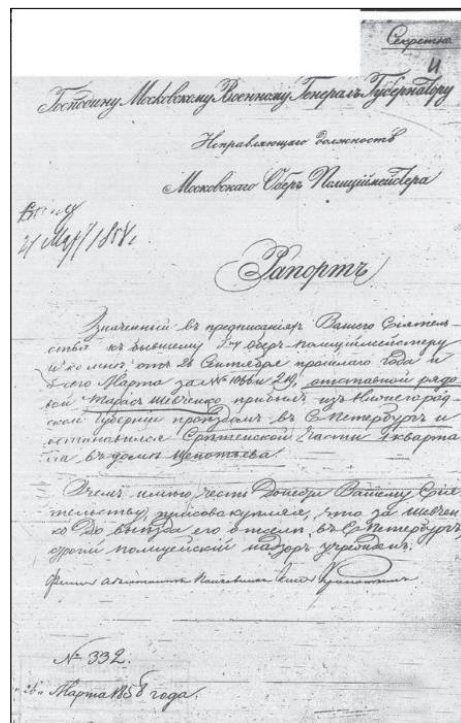 Секретно
Господину Московскому Военному Генералъ Губернатору
Исправляющаго должность
Московскаго Оберъ Полиціймейстера
21 Март 1858
Рапортъ
Значенный въ предписаніяхъ Вашего Сіятель-
ства къ бывшему Оберъ-полиціймейстеру
и ко мнѣ отъ 26 Сентября прошлаго года и
Марта за №№ отставной рядо-
вой Тарасъ Шевченко прибылъ изъ Нижегород-
ской Губерніи проѣздомъ въ С. Петербургъ и
остановился Срѣтенской Части кварта
ла въ домѣ Щепотьева.
О чемъ имѣю честь Донести Вашему Сія
тельству, присовокупляя, что за Шевчен-
ко до выѣзда его отселѣ въ С. Петербургъ,
строгій полицейскій надзоръ учрежденъ.
Князь Кропоткинъ
№ 332.
Марта 1858 года.